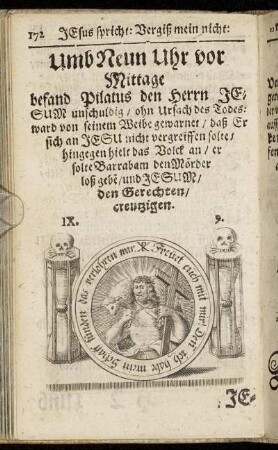 172 JEsus spricht: Vergiß mein nicht:
Umb Neun Uhr vor
Mittage
befand Pilatus den Herrn JE-
SUM unschuldig / ohn Ursach des Todes:
ward von seinem Weibe gewarnet / daß Er
sich an JESU nicht vergreiffen solte /
hingegen hielt das Volck an / er
solte Barrabam den Mörder
loß gebē / und JESUM /
den Gerechten /
creutzigen.
IX. 9.
Freuet euch mit mir: Den ich habe mein Schaff funden das verlohren war.
JE-